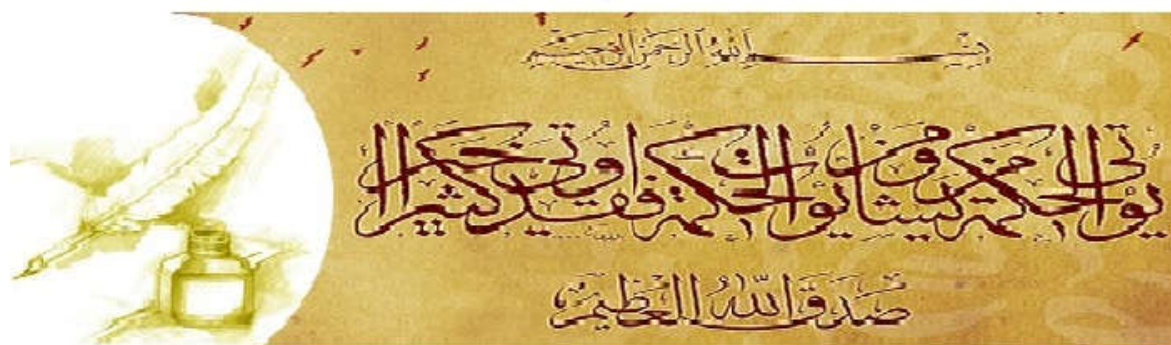 بسم الله الرحمن الرحيم
يؤتي الحكمة من يشاء ومن يؤت الحكمة فقد أوتي خيرا كثيرا
صدق الله العظيم